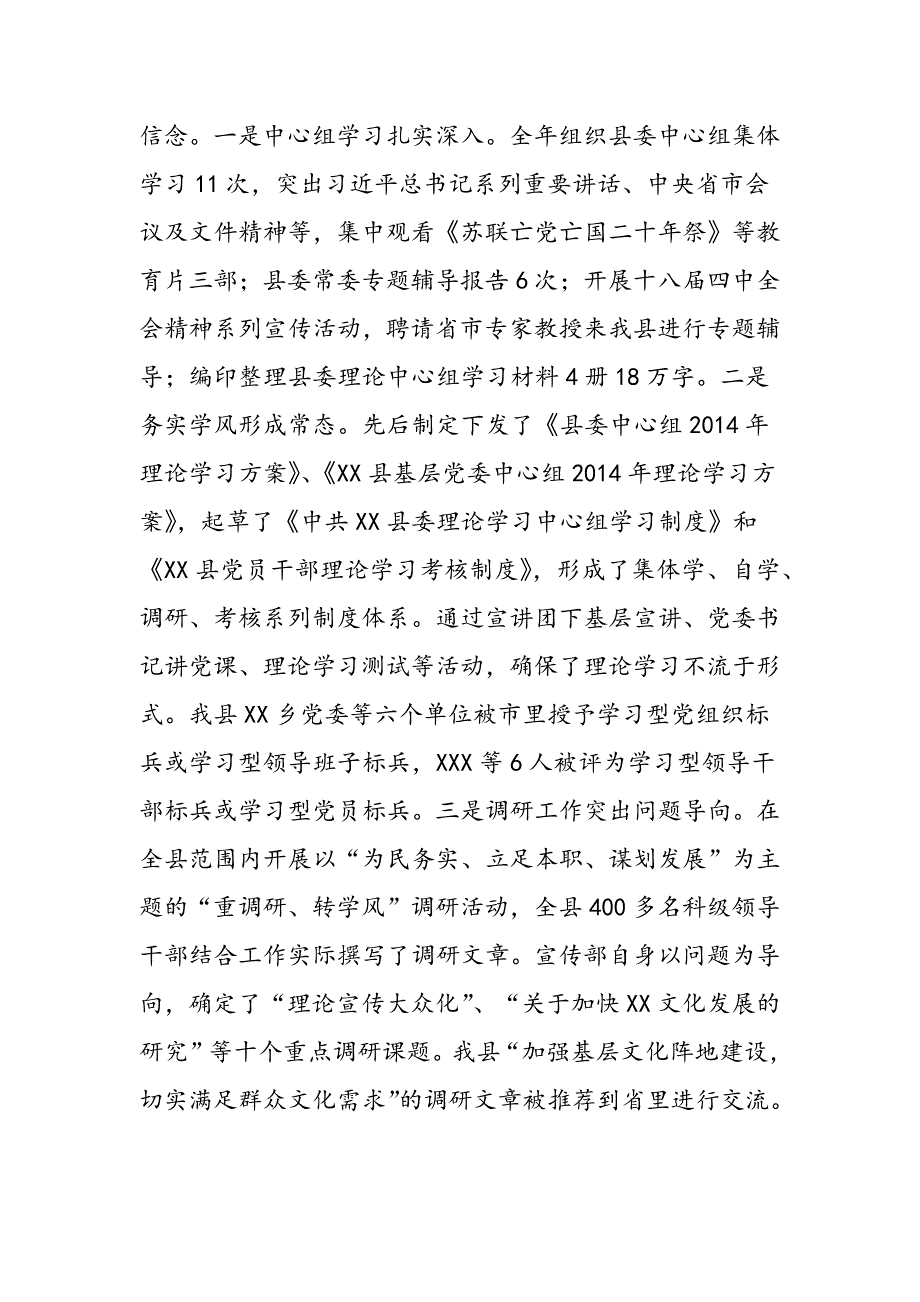 信念。一是中心组学习扎实深入。全年组织县委中心组集体
学习11次，突出习近平总书记系列重要讲话、中央省市会
议及文件精神等，集中观看《苏联亡党亡国二十年祭》等教
育片三部；县委常委专题辅导报告6次；开展十八届四中全
会精神系列宣传活动，聘请省市专家教授来我县进行专题辅
导；编印整理县委理论中心组学习材料4册18万字。二是
务实学风形成常态。先后制定下发了《县委中心组2014年
理论学习方案》、《XX县基层党委中心组2014年理论学习方
案》，起草了《中共XX县委理论学习中心组学习制度》和
《XX县党员干部理论学习考核制度》，形成了集体学、自学、
调研、考核系列制度体系。通过宣讲团下基层宣讲、党委书
记讲党课、理论学习测试等活动，确保了理论学习不流于形
式。我县XX乡党委等六个单位被市里授予学习型党组织标
兵或学习型领导班子标兵，XXX等6人被评为学习型领导干
部标兵或学习型党员标兵。三是调研工作突出问题导向。在
全县范围内开展以“为民务实、立足本职、谋划发展”为主
题的“重调研、转学风”调研活动，全县400多名科级领导
干部结合工作实际撰写了调研文章。宣传部自身以问题为导
向，确定了“理论宣传大众化”、“关于加快XX文化发展的
研究”等十个重点调研课题。我县“加强基层文化阵地建设，
切实满足群众文化需求”的调研文章被推荐到省里进行交流。